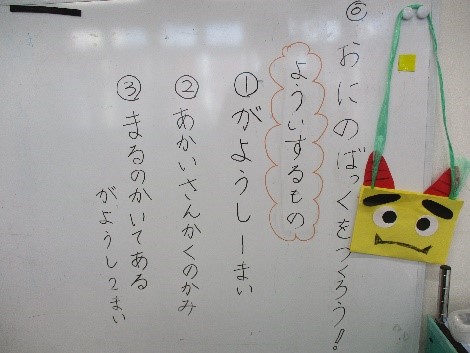 ◎ おにのばっくをつくろう!!
よういするもの
① がようし一まい
② あかいさんかくのかみ
③ まるのかいてある
がようし2まい